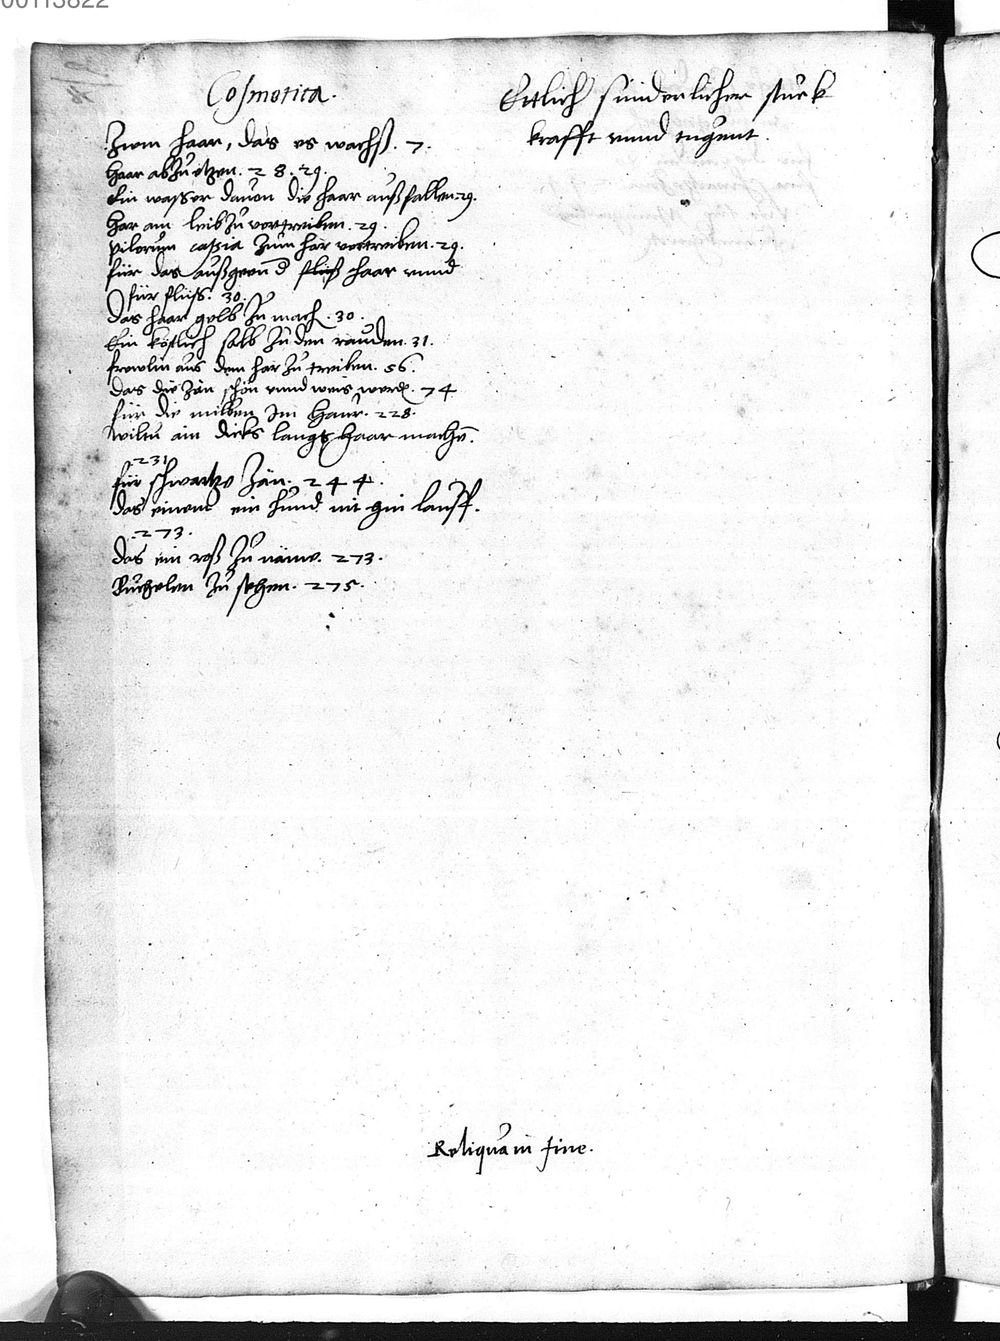 00113822
Cosmetica.
Zum haar, das es wachß. 7.
Haar abzuetzen. 28. 29.
Ein wasser dauon die haar außfallen. 29.
Har am leib zu vertreiben. 29.
pilorum cassia zum har vertreiben. 29.
für das außgeend fließ haar vnnd
für fluß. 30.
Das haar gelb zu mach. 30.
Ein köstlich salb zu den rauden. 31.
frewlin aus dem har zu treiben. 56.
das die zän schön vnnd weis werd. 74
für die milben im Haar. 228.
wiltu ain dicks langs haar machē.
231
für schwartze Zän. 244.
das einem ein hund nit gin lauff.
273.
das ein roß zu 273.
zu sehen. 275.
Ettlich sunderlicher stuck
krafft vnnd tugent.
Reliqua in fine.